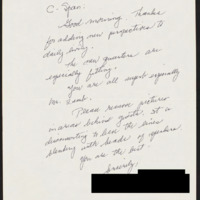 C. Span.
Good morning. Thanks
for adding new perspectives to
daily living.
The new quarters are
especially fitting.
You are all expert especially
Mr. Lamb.
Please remove pictures
in areas behind guests. It is
disconcerting to see the lines
blending with heads of speakers
You are the best.
Sincerely,